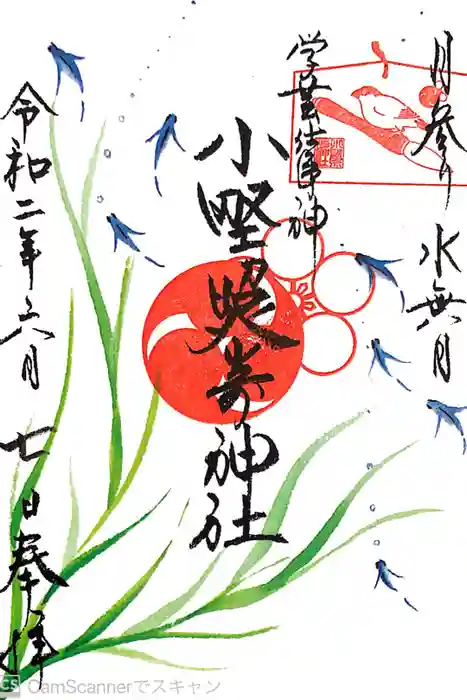 月参り 水無月
学芸 神
小野照崎神社
令和二年六月七日奉拝
CS CamScannerでスキャン